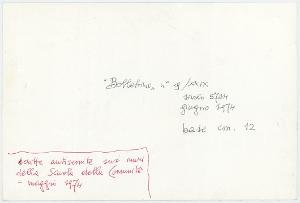 "Bollettino" n° 9/XXIX
sivan 5734
giugno 1974
base cm. 12
scritte antisemite sui muri
della Scuola della Comunità
- maggio 1974